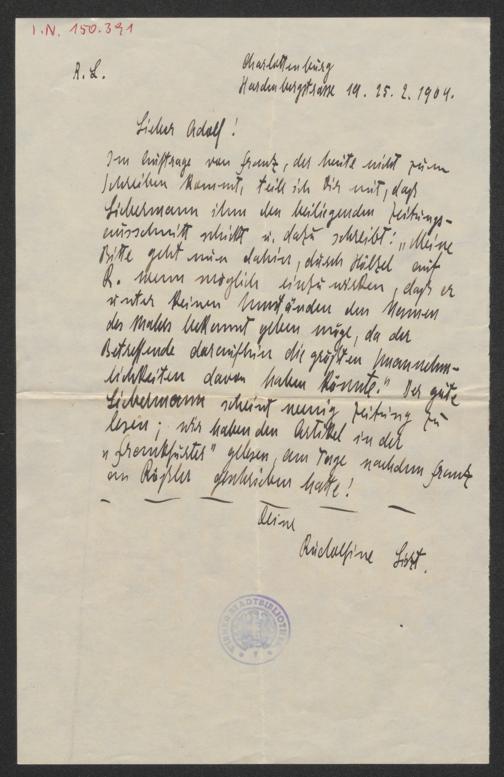 I.N. 150.391
R. L.
Charlottenburg
Hardenbergstrasse 19. 25.2.1904.
Lieber Adolf!
Im Auftrage von Frantz, der heute nicht zum
Schreiben kommt, teile ich Dir mit, daß
Liebermann ihm den beiliegenden Zeitungs-
ausschnitt schickt u. dazu schreibt: „Meine
Bitte geht nun dahin, durch Hölzel auf
R. wenn möglich einzuwirken, daß er
unter keinen Umständen den Namen
des Malers bekannt geben möge, da der
Betreffende daraufhin die größten Unannehm-
lichkeiten davon haben könnte." Der gute
Liebermann scheint wenig Zeitung zu
lesen; wir haben den Artikel in der
„Frankfurter" gelesen, am Tage nachdem Frantz
an Rößler geschrieben hatte!
Deine
Rudolfine
WIENER STADTBIBLIOTHEK